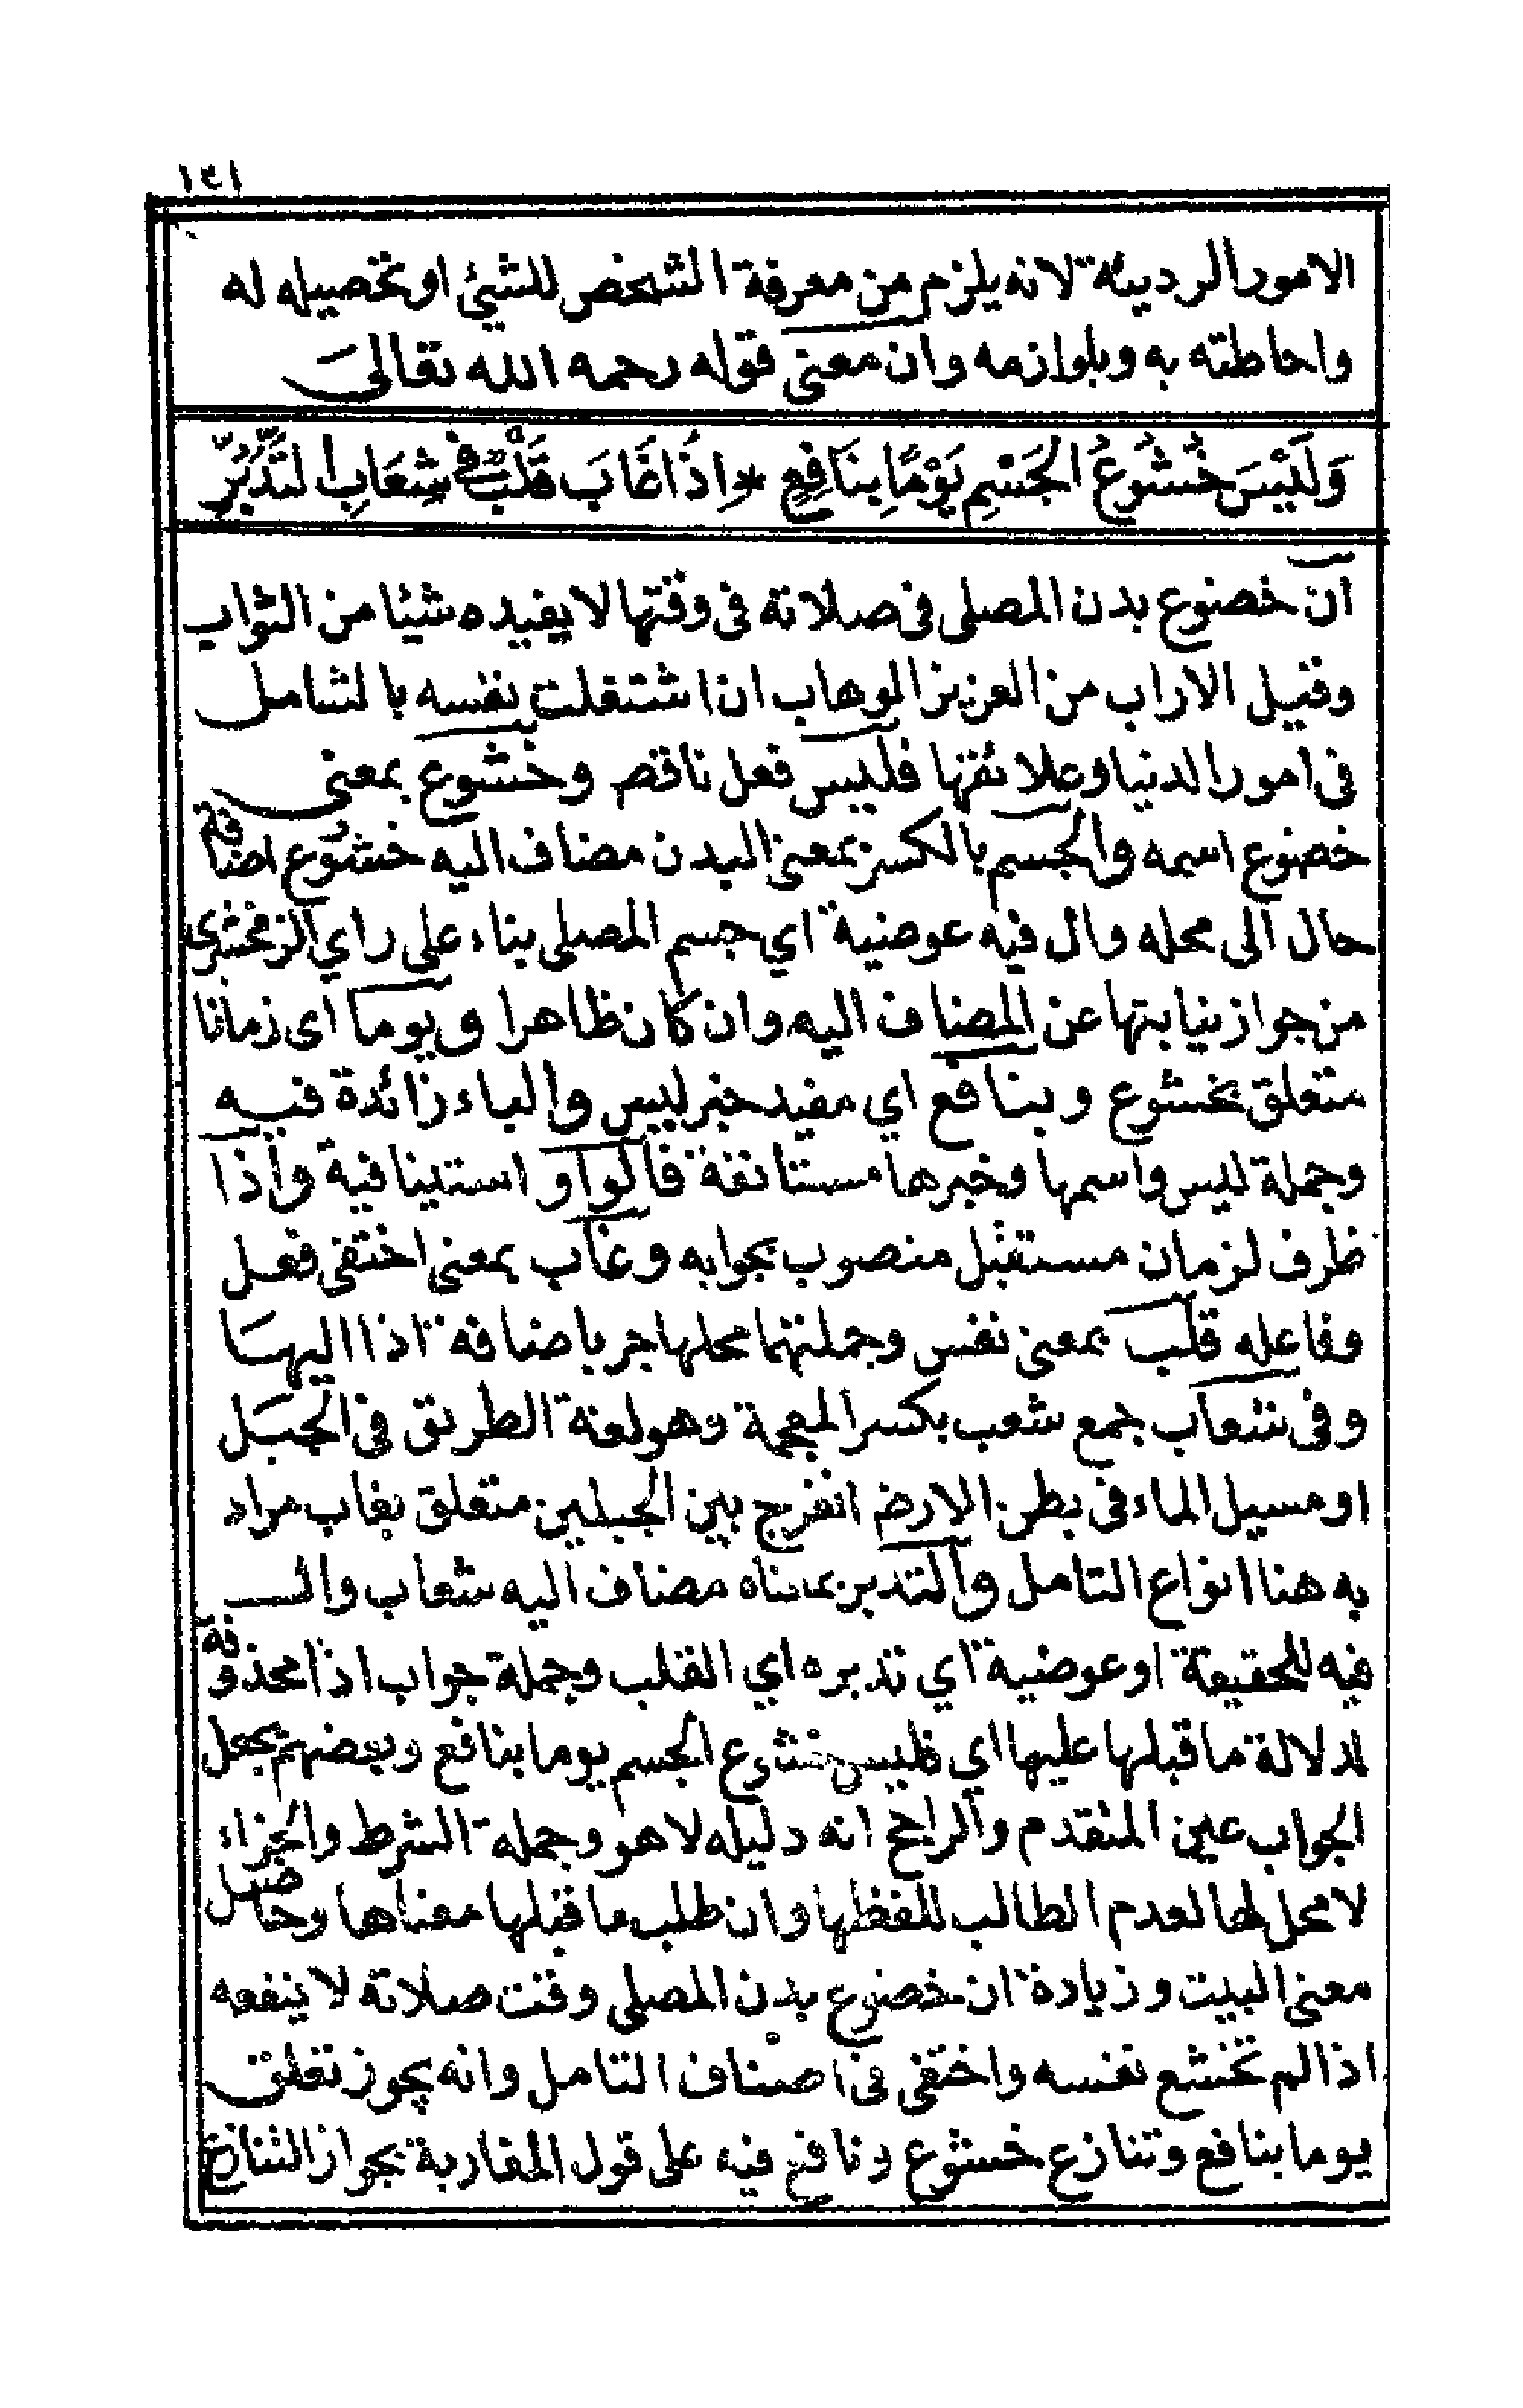 ١٤١
الامور الرديئة لانه يلزم من معرفة الشخص للشيئ او تحصيله له
واحاطته به وبلوازمه وان معنى قوله رحمه الله تعالى
وَلَيْسَ خُشُوعُ الجَسْمِ يَوْمًا بِنَافِعٍ * اِذَا غَابَ قَلْبٌ فِي شِعَابِ التَّدَبُّرِ
ان خضوع بدن المصلى فى صلاته فى وقتها لا يفيده شيئا من الثواب
ونيل الاراب من العزيز الوهاب ان اشتغلت نفسه بالتامل
فى امور الدنيا وعلائقها فليس فعل ناقص وخشوع بمعنى
خضوع اسمه والجسم بالكسر بمعنى البدن مضاف اليه خشوع اضافة
حال الى محله وال فيه عوضية اي جسم المصلى بناء على راي الزمخشرى
من جواز نيابتها عن المضاف اليه وان كان ظاهرا ويوما اى زمانا
متعلق بخشوع وبنافع اي مفيد خبر ليس والباء زائدة فيه
وجملة ليس واسمها وخبرها مستانفة فالواو استينافية واذا
ظرف لزمان مستقبل منصوب بجوابه وغاب بمعنى اختفى فعل
وفاعله قلب بمعنى نفس وجملتهما محلها جر باضافة اذا اليها
وفى شعاب جمع شعب بكسر المعجمة وهو لغة الطريق في الجبل
او مسيل الماء فى بطن الارض انفرج بين الجبلين متعلق بغاب مراد
به هنا انواع التامل والتدبر بمعناه مضاف اليه شعاب وال
فيه للحقيقة او عوضية اي تدبره اي القلب وجملة جواب اذا محذوفة
لدلالة ما قبلها عليها اي فليس خشوع الجسم يوما بنافع وبعضهم يجعل
الجواب عين المتقدم والراجح انه دليله لا هو وجملة الشرط والجزاء
لا محل لها لعدم الطالب للفظها وان طلب ما قبلها معناها وحاصل
معنى البيت وزيادة ان خضوع بدن المصلى وقت صلاته لا ينفعه
اذا لم تخشع نفسه واختفى فى اصناف التامل وانه يجوز تعلق
يوما بنافع وتنازع خشوع ونافع فيه على قول المغاربة بجواز التنازع